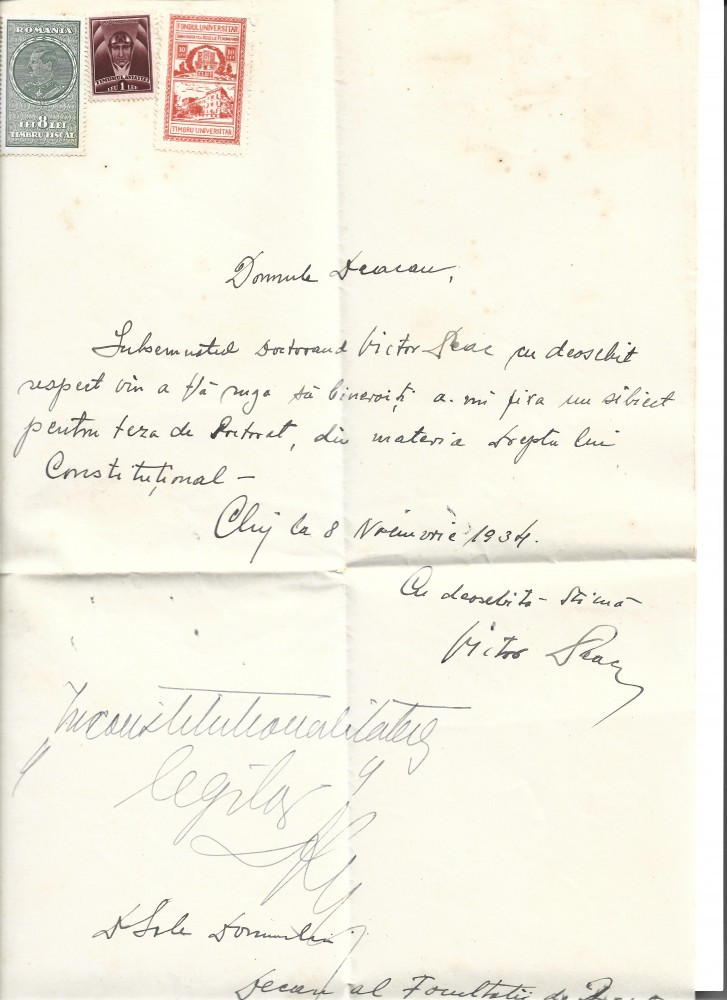 ROMANIA
LEI 8 LEI
TIMBRU FISCAL
TIMBRUL AVIATIEI
LEU 1 LEU
FONDUL UNIVERSITAR
10 LEI 10 LEI
CLUJ
TIMBRU UNIVERSITAR
Domnule Decan,
Subsemnatul Doctorand Victor Deac cu deosebit
respect vin a Vă ruga să binevoiți a-mi fixa un subiect
pentru teza de Doctorat, din materia Dreptului
Constituțional –
Cluj la 8 Noiemvrie 1934.
Cu deosebită stimă
Victor Deac
„Inconstituționalitatea
legilor"
D Sale Domnului
Decan al Facultății de